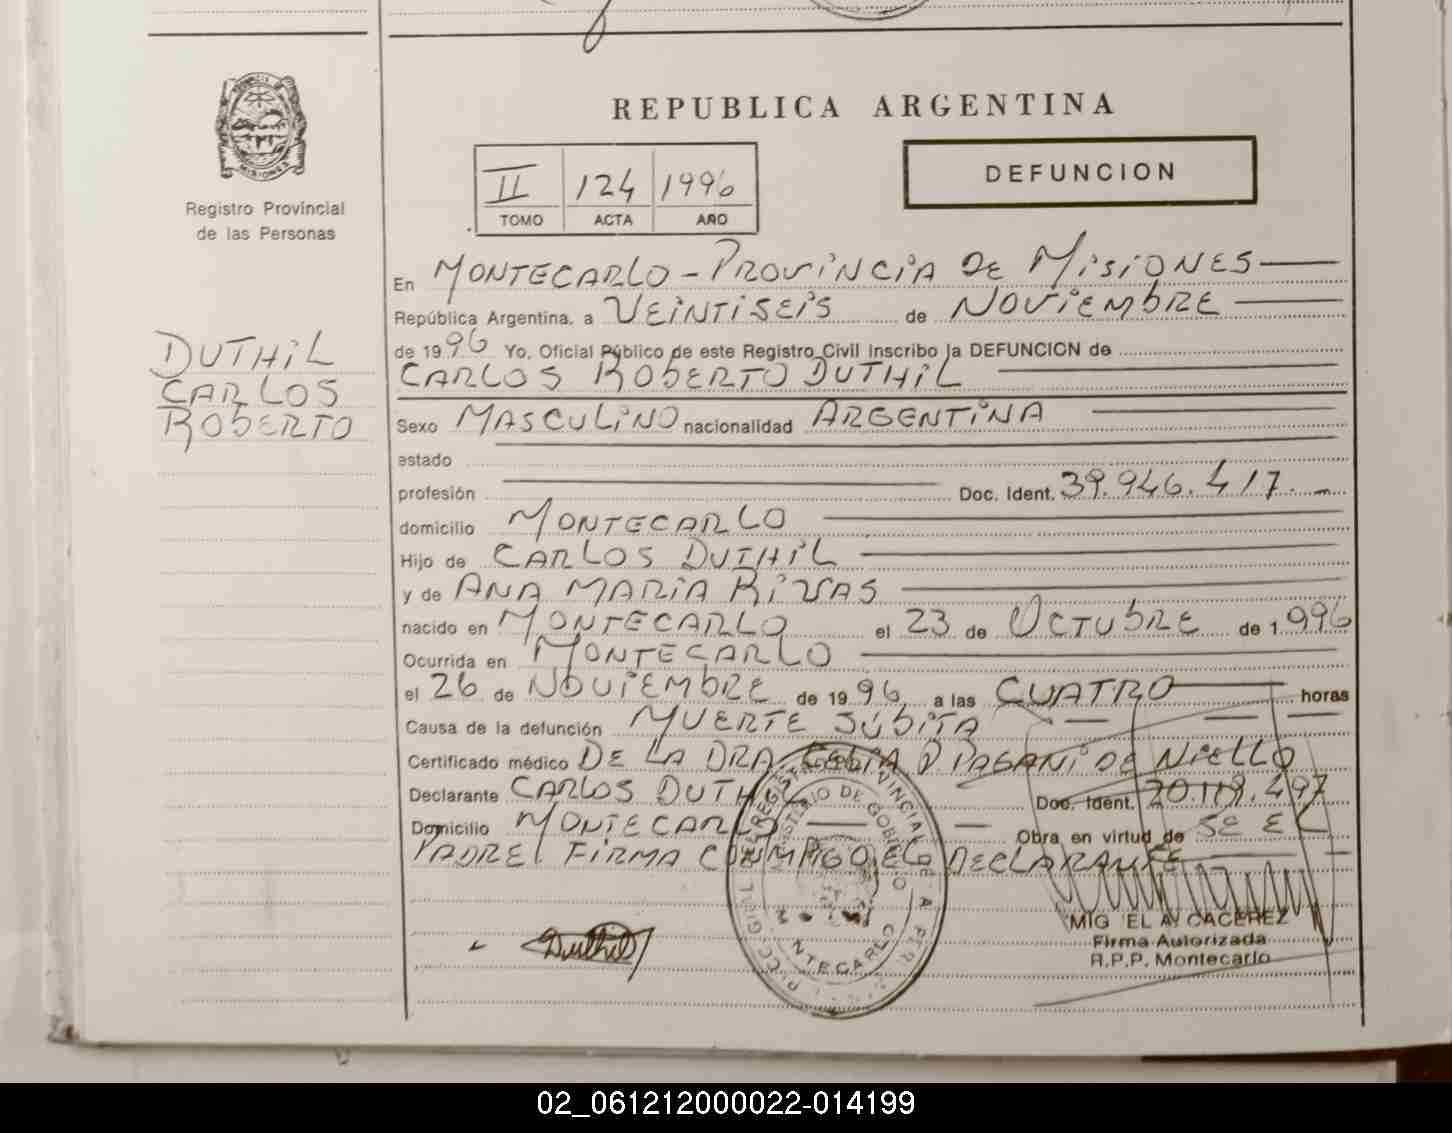 REPUBLICA ARGENTINA
DEFUNCION
II 124 1996
TOMO ACTA AÑO
MISIONES
Registro Provincial
de las Personas
DUTHIL
CARLOS
ROBERTO
En MONTECARLO - PROVINCIA DE MISIONES
República Argentina, a VEINTISEIS de NOVIEMBRE
de 1996 Yo, Oficial Público de este Registro Civil inscribo la DEFUNCION de
CARLOS ROBERTO DUTHIL
Sexo MASCULINO nacionalidad ARGENTINA
estado
profesión Doc. Ident. 39.946.417.-
domicilio MONTECARLO
Hijo de CARLOS DUTHIL
y de ANA MARIA RIVAS
nacido en MONTECARLO el 23 de OCTUBRE de 1.996
Ocurrida en MONTECARLO
el 26 de NOVIEMBRE de 1996 a las CUATRO horas
Causa de la defunción MUERTE SÚBITA
Certificado médico DE LA DRA CELIA D PAGANI DE NIELLO
Declarante CARLOS DUTHIL Doc. Ident. 20.118.497
Domicilio MONTECARLO Obra en virtud de SE EL
PADRE, FIRMA CONMIGO EL DECLARANTE
Duthil
MIGUEL A. CACEREZ
Firma Autorizada
R.P.P. Montecarlo
02_061212000022-014199